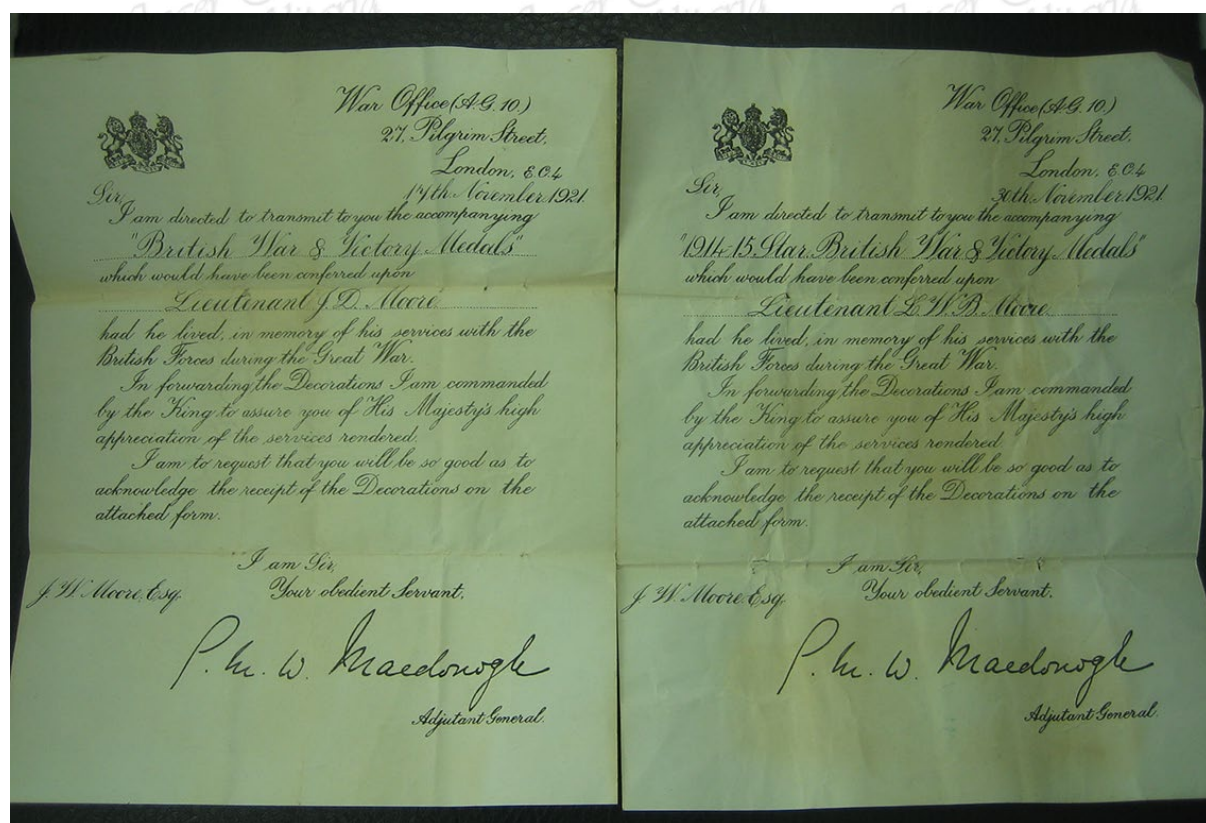 War Office (A.G. 10)
27, Pilgrim Street,
London, E.C.4
17th November 1921.
Sir,
I am directed to transmit to you the accompanying
"British War & Victory Medals"
which would have been conferred upon
Lieutenant J. D. Moore
had he lived, in memory of his services with the
British Forces during the Great War.
In forwarding the Decorations I am commanded
by the King to assure you of His Majesty's high
appreciation of the services rendered.
I am to request that you will be so good as to
acknowledge the receipt of the Decorations on the
attached form.
I am Sir,
Your obedient Servant,
J. W. Moore, Esq.
G. M. W. Macdonogh
Adjutant General.
War Office (A.G. 10)
27, Pilgrim Street,
London, E.C.4
30th November 1921.
Sir,
I am directed to transmit to you the accompanying
"1914-15 Star, British War & Victory Medals"
which would have been conferred upon
Lieutenant L. W. B. Moore
had he lived, in memory of his services with the
British Forces during the Great War.
In forwarding the Decorations I am commanded
by the King to assure you of His Majesty's high
appreciation of the services rendered
I am to request that you will be so good as to
acknowledge the receipt of the Decorations on the
attached form.
I am Sir,
Your obedient Servant,
J. W. Moore, Esq.
G. M. W. Macdonogh
Adjutant General.